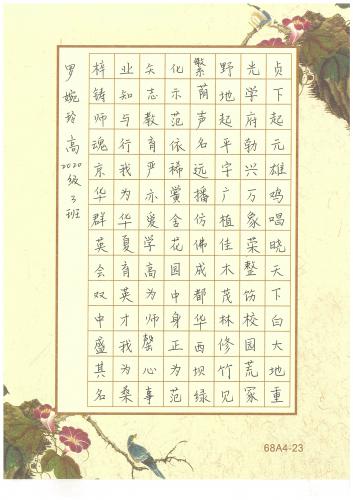 贞下起元雄鸡唱晓天下白大地重
光学府勃兴万象荣整饬校园荒冢
野地起平宇广植佳木茂林修竹见
繁荫声名远播仿佛成都华西坝绿
化示范依稀黉舍花园中身正为范
矢志教育严亦爱学高为师罄心事
业知与行我为华夏育英才我为桑
梓铸师魂京华群英会双中盛其名
罗婉玲 高2020级3班
68A4-23